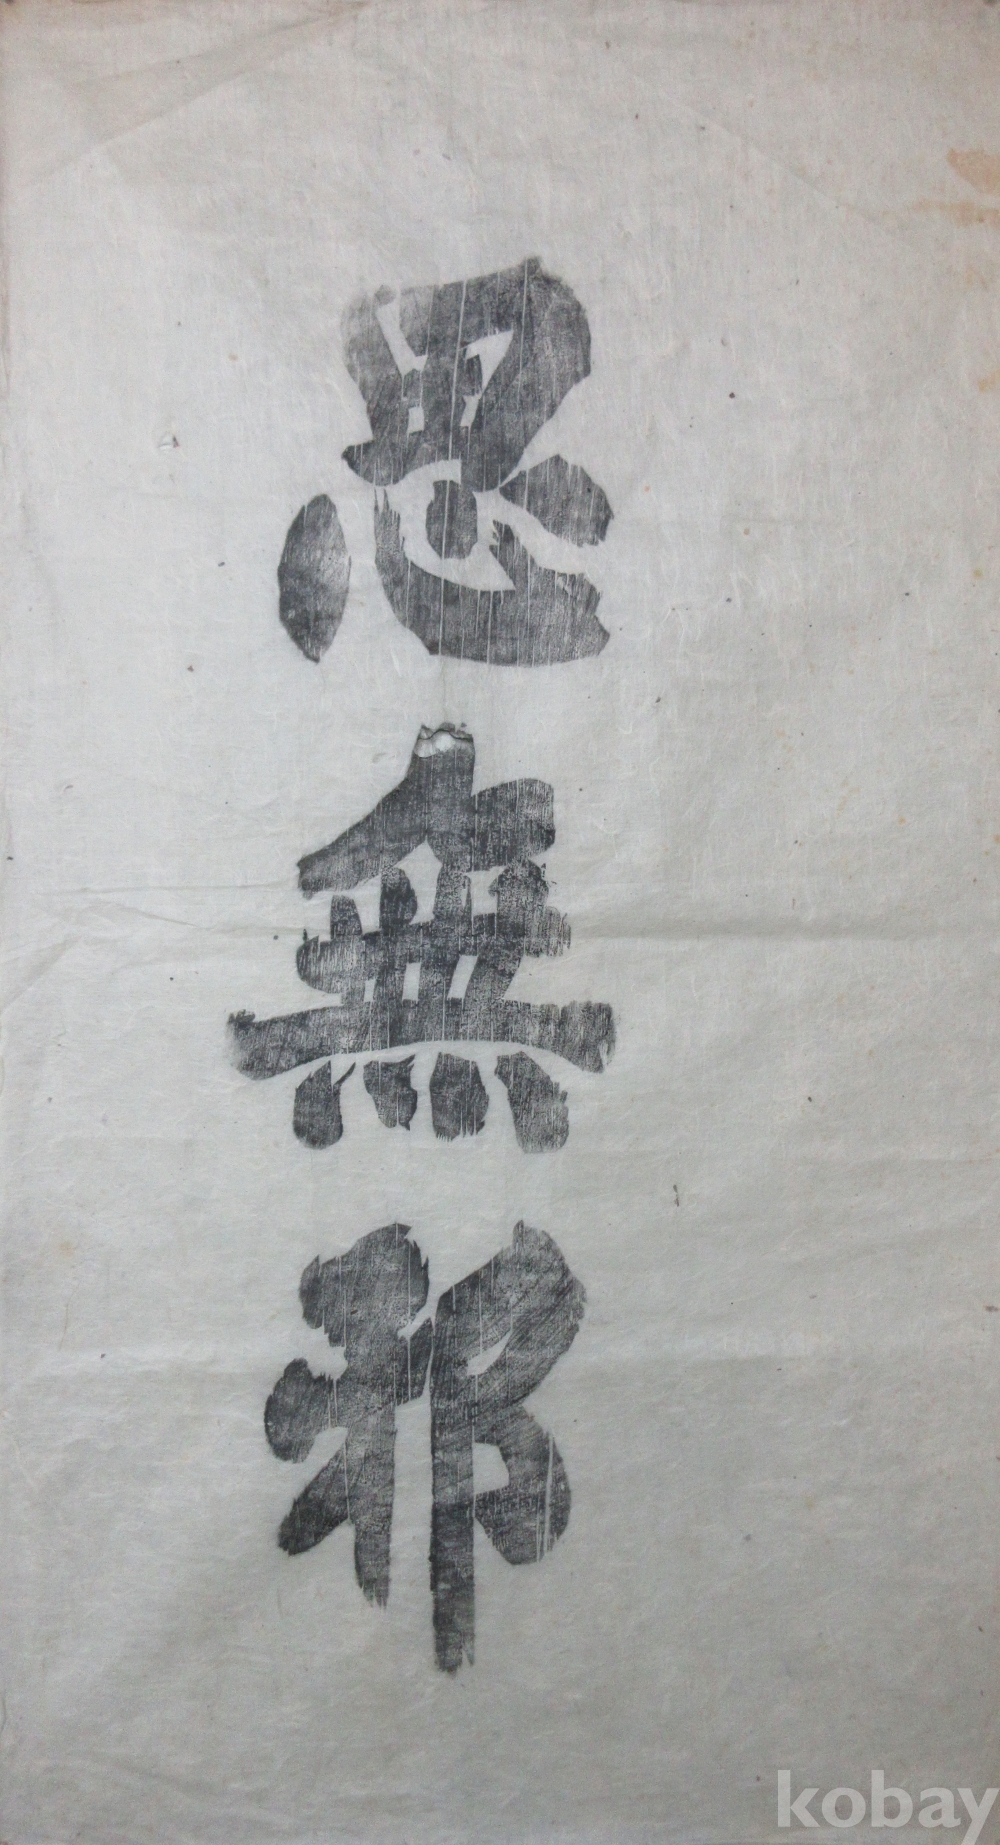 思無邪
kobay